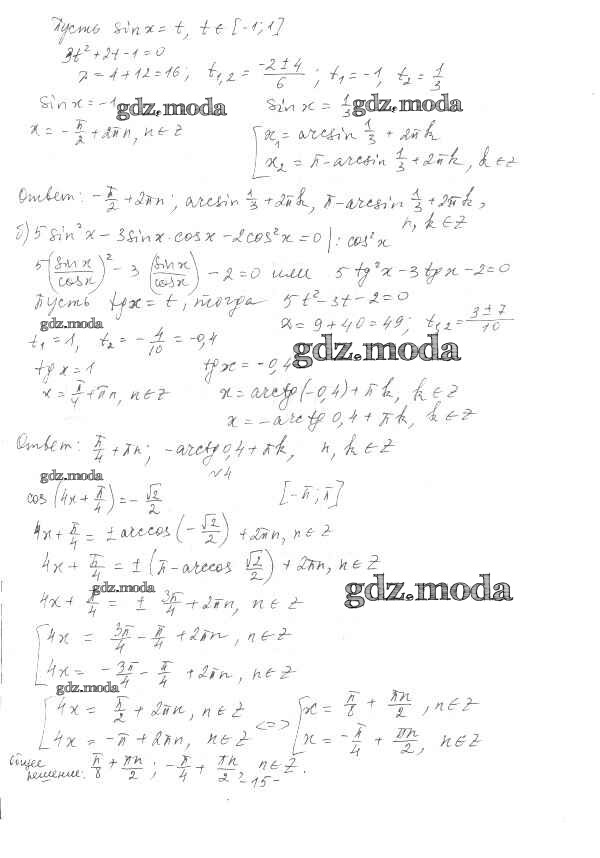 Пусть sin x = t, t ∈ [-1; 1]
3t² + 2t - 1 = 0
D = 4 + 12 = 16; t₁,₂ = (-2 ± 4)/6; t₁ = -1, t₂ = 1/3
sin x = -1 gdz.moda sin x = 1/3 gdz.moda
x = -π/2 + 2πn, n ∈ Z [x₁ = arcsin 1/3 + 2πk
x₂ = π - arcsin 1/3 + 2πk, k ∈ Z
Ответ: -π/2 + 2πn; arcsin 1/3 + 2πk, π - arcsin 1/3 + 2πk,
n, k ∈ Z
б) 5 sin² x - 3 sin x · cos x - 2cos² x = 0 |: cos² x
5(sin x/cos x)² - 3(sin x/cos x) - 2 = 0 или 5 tg² x - 3 tg x - 2 = 0
Пусть tg x = t, тогда 5t² - 3t - 2 = 0
gdz.moda D = 9 + 40 = 49; t₁,₂ = (3 ± 7)/10
t₁ = 1, t₂ = -4/10 = -0,4 gdz.moda
tg x = 1 tg x = -0,4
x = π/4 + πn, n ∈ Z x = arctg(-0,4) + πk, k ∈ Z
x = -arctg 0,4 + πk, k ∈ Z
Ответ: π/4 + πn; -arctg 0,4 + πk, n, k ∈ Z
№4
gdz.moda
cos(4x + π/4) = -√2/2 [-π; π]
4x + π/4 = ± arccos(-√2/2) + 2πn, n ∈ Z
4x + π/4 = ± (π - arccos √2/2) + 2πn, n ∈ Z
gdz.moda gdz.moda
4x + π/4 = ± 3π/4 + 2πn, n ∈ Z
[4x = 3π/4 - π/4 + 2πn, n ∈ Z
4x = -3π/4 - π/4 + 2πn, n ∈ Z
gdz.moda
[4x = π/2 + 2πn, n ∈ Z <=> [x = π/8 + πn/2, n ∈ Z
4x = -π + 2πn, n ∈ Z x = -π/4 + πn/2, n ∈ Z
Общее
решение: π/8 + πn/2; -π/4 + πn/2, n ∈ Z.
- 15 -